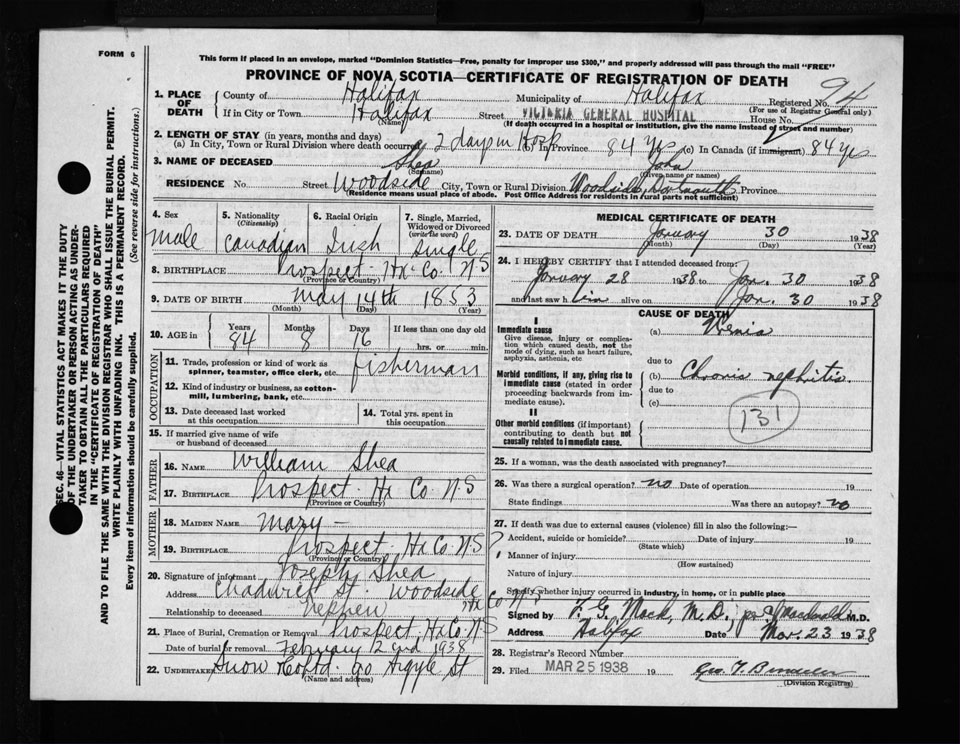 FORM 6
This form if placed in an envelope, marked "Dominion Statistics—Free, penalty for improper use $300," and properly addressed will pass through the mail "FREE"
PROVINCE OF NOVA SCOTIA—CERTIFICATE OF REGISTRATION OF DEATH
1. PLACE OF DEATH County of Halifax Municipality of Halifax Registered No. 94
(For use of Registrar General only)
If in City or Town Halifax Street VICTORIA GENERAL HOSPITAL House No.
(Name) (If death occurred in a hospital or institution, give the name instead of street and number)
2. LENGTH OF STAY (in years, months and days)
(a) In City, Town or Rural Division where death occurred 2 days in Hosp In Province 84 yrs (c) In Canada (if immigrant) 84 yrs
3. NAME OF DECEASED Shea John
(Surname) (Given name or names)
RESIDENCE No. Street Woodside City, Town or Rural Division Woodside, Dartmouth Province
(Residence means usual place of abode. Post Office Address for residents in rural parts not sufficient)
4. Sex male
5. Nationality (Citizenship) Canadian
6. Racial Origin Irish
7. Single, Married, Widowed or Divorced (write the word) single
8. BIRTHPLACE Prospect. Hx. Co. N-S
(Province or Country)
9. DATE OF BIRTH May 14th 1853
(Month) (Day) (Year)
10. AGE in Years 84 Months 8 Days 16 If less than one day old hrs. or min.
OCCUPATION
11. Trade, profession or kind of work as spinner, teamster, office clerk, etc. fisherman
12. Kind of industry or business, as cotton-mill, lumbering, bank, etc.
13. Date deceased last worked at this occupation
14. Total yrs. spent in this occupation
15. If married give name of wife or husband of deceased
FATHER
16. NAME William Shea
17. BIRTHPLACE Prospect. Hx Co. N-S
(Province or Country)
MOTHER
18. MAIDEN NAME Mary —
19. BIRTHPLACE Prospect, Hx Co. N-S
(Province or Country)
20. Signature of informant Joseph Shea
Address Chadwick St. Woodside Hx Co N-S
Relationship to deceased nephew
21. Place of Burial, Cremation or Removal Prospect, Hx Co. N-S
Date of burial or removal February 2nd 1938
22. UNDERTAKER Snow Co Ltd. 90 Argyle St
(Name and address)
MEDICAL CERTIFICATE OF DEATH
23. DATE OF DEATH January 30 1938
(Month) (Day) (Year)
24. I HEREBY CERTIFY that I attended deceased from:
January 28 1938 to Jan. 30 1938
and last saw him alive on Jan. 30 1938
CAUSE OF DEATH
I
Immediate cause (a) Uremia
Give disease, injury or complication which caused death, not the mode of dying, such as heart failure, asphyxia, asthenia, etc
due to
Morbid conditions, if any, giving rise to immediate cause (stated in order proceeding backwards from immediate cause). (b) Chronic nephritis
due to
(c)
131
II
Other morbid conditions (if important) contributing to death but not causally related to immediate cause.
25. If a woman, was the death associated with pregnancy?
26. Was there a surgical operation? no Date of operation 19
State findings Was there an autopsy? no
27. If death was due to external causes (violence) fill in also the following:—
Accident, suicide or homicide? Date of injury 19
(State which)
Manner of injury
(How sustained)
Nature of injury
Specify whether injury occurred in industry, in home, or in public place
Signed by F. G. Mack, M.D., per Macdonald M.D.
Address Halifax Date Mar. 23 1938
28. Registrar's Record Number
29. Filed MAR 25 1938 19
(Division Registrar)
SEC. 46—VITAL STATISTICS ACT MAKES IT THE DUTY
OF THE UNDERTAKER OR PERSON ACTING AS UNDER-
TAKER TO OBTAIN ALL THE PARTICULARS REQUIRED
IN THE "CERTIFICATE OF REGISTRATION OF DEATH"
AND TO FILE THE SAME WITH THE DIVISION REGISTRAR WHO SHALL ISSUE THE BURIAL PERMIT.
WRITE PLAINLY WITH UNFADING INK. THIS IS A PERMANENT RECORD.
Every item of information should be carefully supplied. (See reverse side for instructions.)